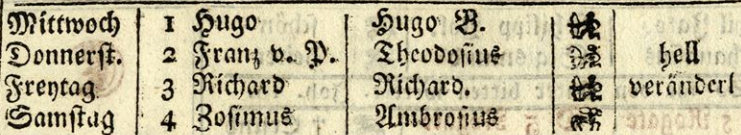 Mittwoch 1 Hugo Hugo B.
Donnerst. 2 Franz v. P. Theodosius hell
Freytag 3 Richard Richard. veränderl
Samstag 4 Zosimus Ambrosius